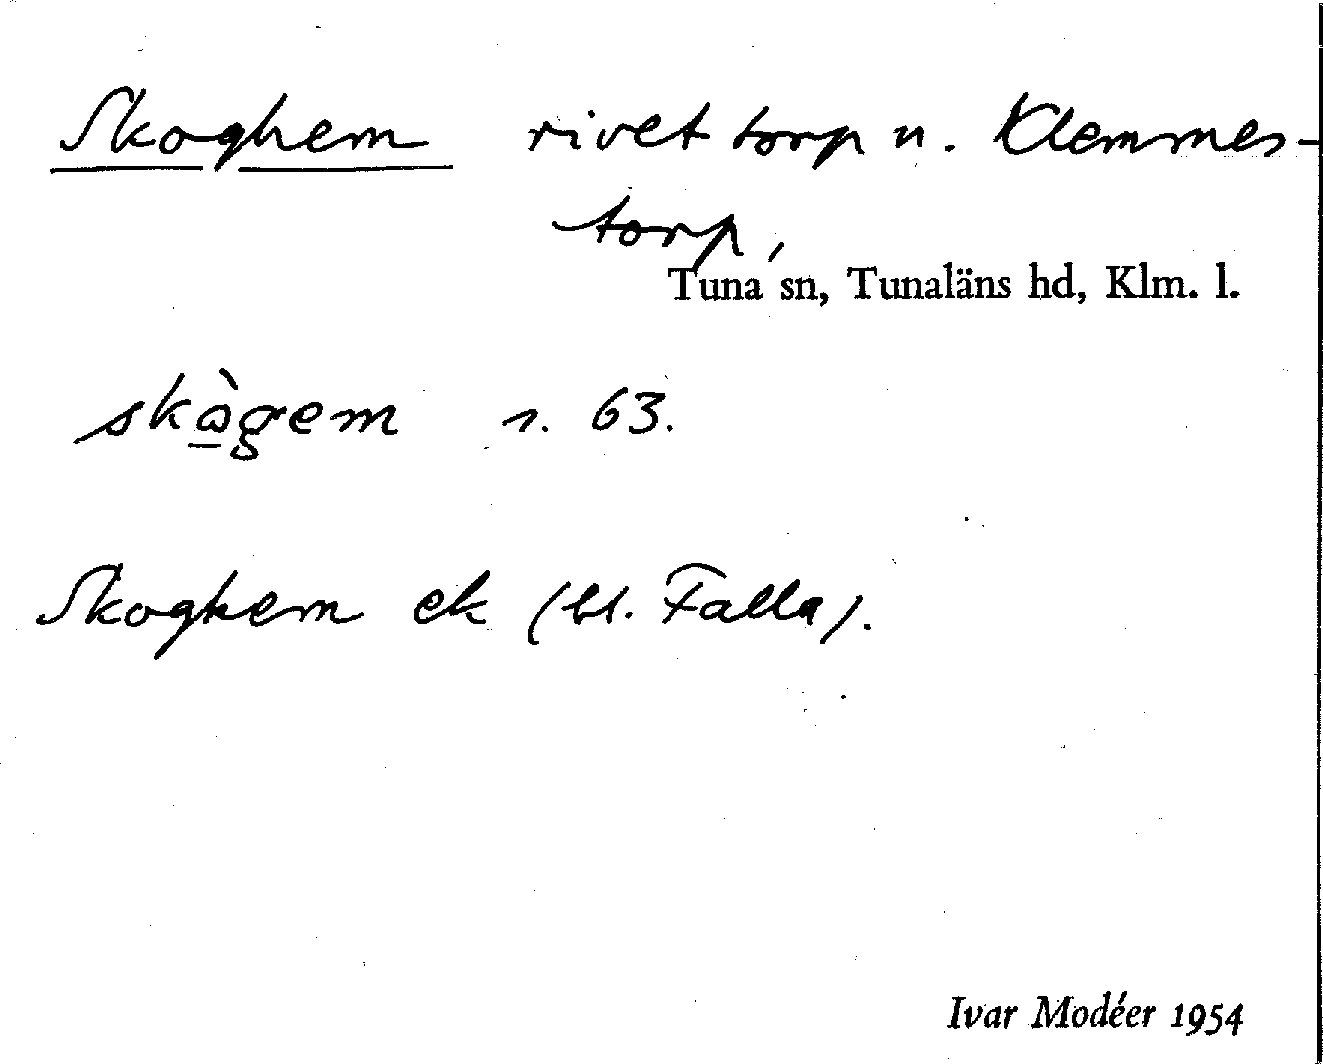 Skoghem rivet torp n. Klemmes-
torp,
Tuna sn, Tunaläns hd, Klm. l.
skò̱gem s. 63.
Skoghem ek (bl. Falla).
Ivar Modéer 1954